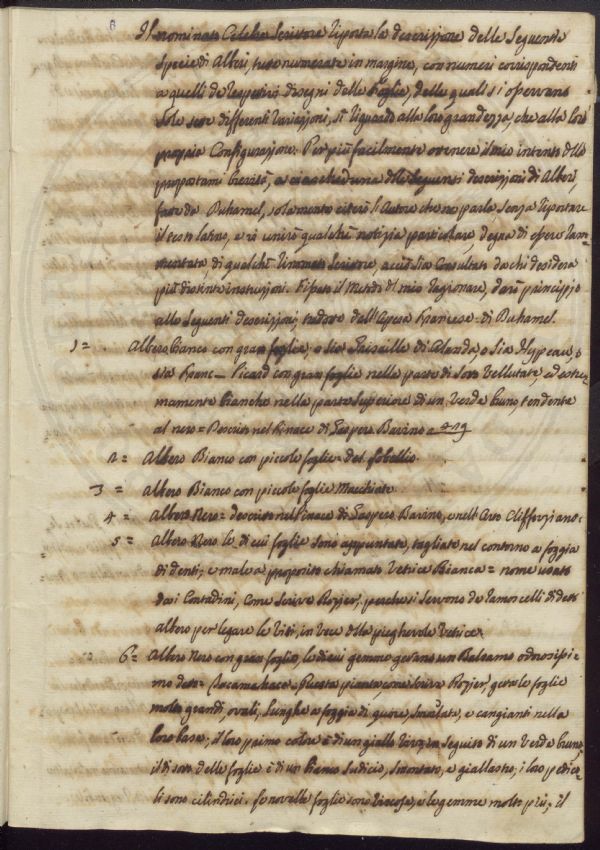 Il nominato Celebre Scrittore riporta la descrizzione delle Seguenti
Specie di Alberi, tutte numerate in margine, con numeri corrispondenti
a quelli de respettivi disegni delle foglie, delle quali si osservano
Sole sette differenti Variazzioni, sì riguardo alla loro grandezza, che alla loro
propria Configurazzione. Per più facilmente ottenere il mio intento della
propostami brevità, a ciascheduna delle Seguenti descrizzioni di Alberi,
fatte da Duhamel, solamente citerò l'Autore che ne parla, senza riportare
il testo latino, e vi unirò qualche notizia particolare, degna di essere ram-
mentata, di qualche rinomato Scrittore, acciò sia Consultato da chi desidera
più distinte instruzzioni. Fissato il Metodo del mio ragionare, darò principio
alle Seguenti descrizzioni, tradotte dall'Opera Francese di Duhamel.
1 = Albero bianco con gran foglie, o sia Grisaille di Olanda o Sia Hypeau, o
sia Franc-Picard con gran foglie nella parte di Sotto Vellutate, ed estre-
mamente bianche nella parte Superiore di un Verde bruno, tendente
al nero = Descritto nel Pinace di Gaspero Bavino a 429
2 = Albero Bianco con piccole foglie = del Lobellio.
3 = Albero Bianco con piccole foglie Macchiate
4 = Albero Nero = descritto nel Pinace di Gaspero Bavino, e nell'Orto Cliffortiano.
5 = Albero Nero le di cui foglie sono appuntate, tagliate nel contorno a foggia
di denti; e male a proposito chiamato Vetrice Bianca = nome usato
dai Contadini, Come Scrive Rozier, perche si servono de ramoscelli di detto
albero per legare le Viti, in vece della pieghevole Vetrice.
6 = Albero Nero con gran foglie, le di cui gemme gettano un Balsamo odorosissi-
mo detto = Tacamahaca = Questa pianta come Scrive Rozier, getta le foglie
molto grandi, ovali, Lunghe a foggia di cuore, e cangianti nella
loro base; il loro primo colore è di un giallo in seguito di un Verde bruno
il di sotto delle foglie è di un bianco Sudicio, Smontato, e giallastro; i loro pedico-
li sono cilindrici. Le novelle foglie sono viscose, e le gemme molto più; il